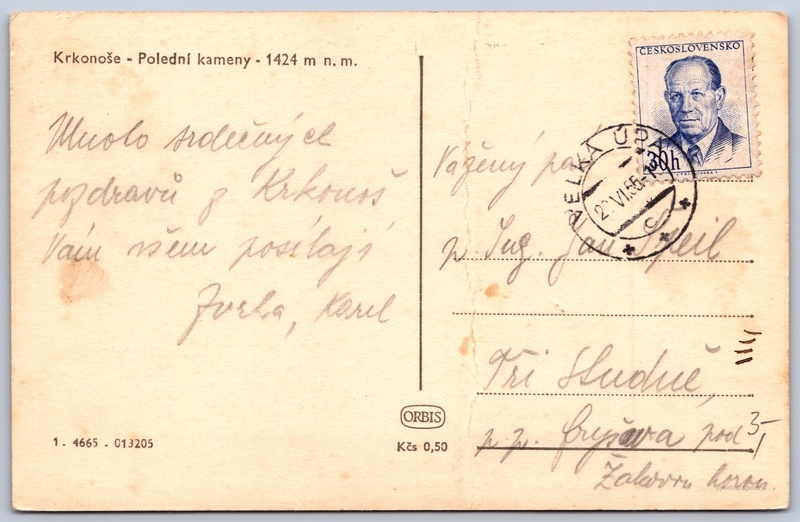 Krkonoše - Polední kameny - 1424 m n. m.
Mnoho srdečných
pozdravů z Krkonoš
Vám všem posílají
Karel
1 . 4665 - 013205
ORBIS
Kčs 0,50
ČESKOSLOVENSKO
30h
VELKÁ ÚPA
VI.55
C
Vážený pan
p. Ing. Jan Speil
Tři Studně,
p. p. Fryšava pod
3,-
Žákovou horou.